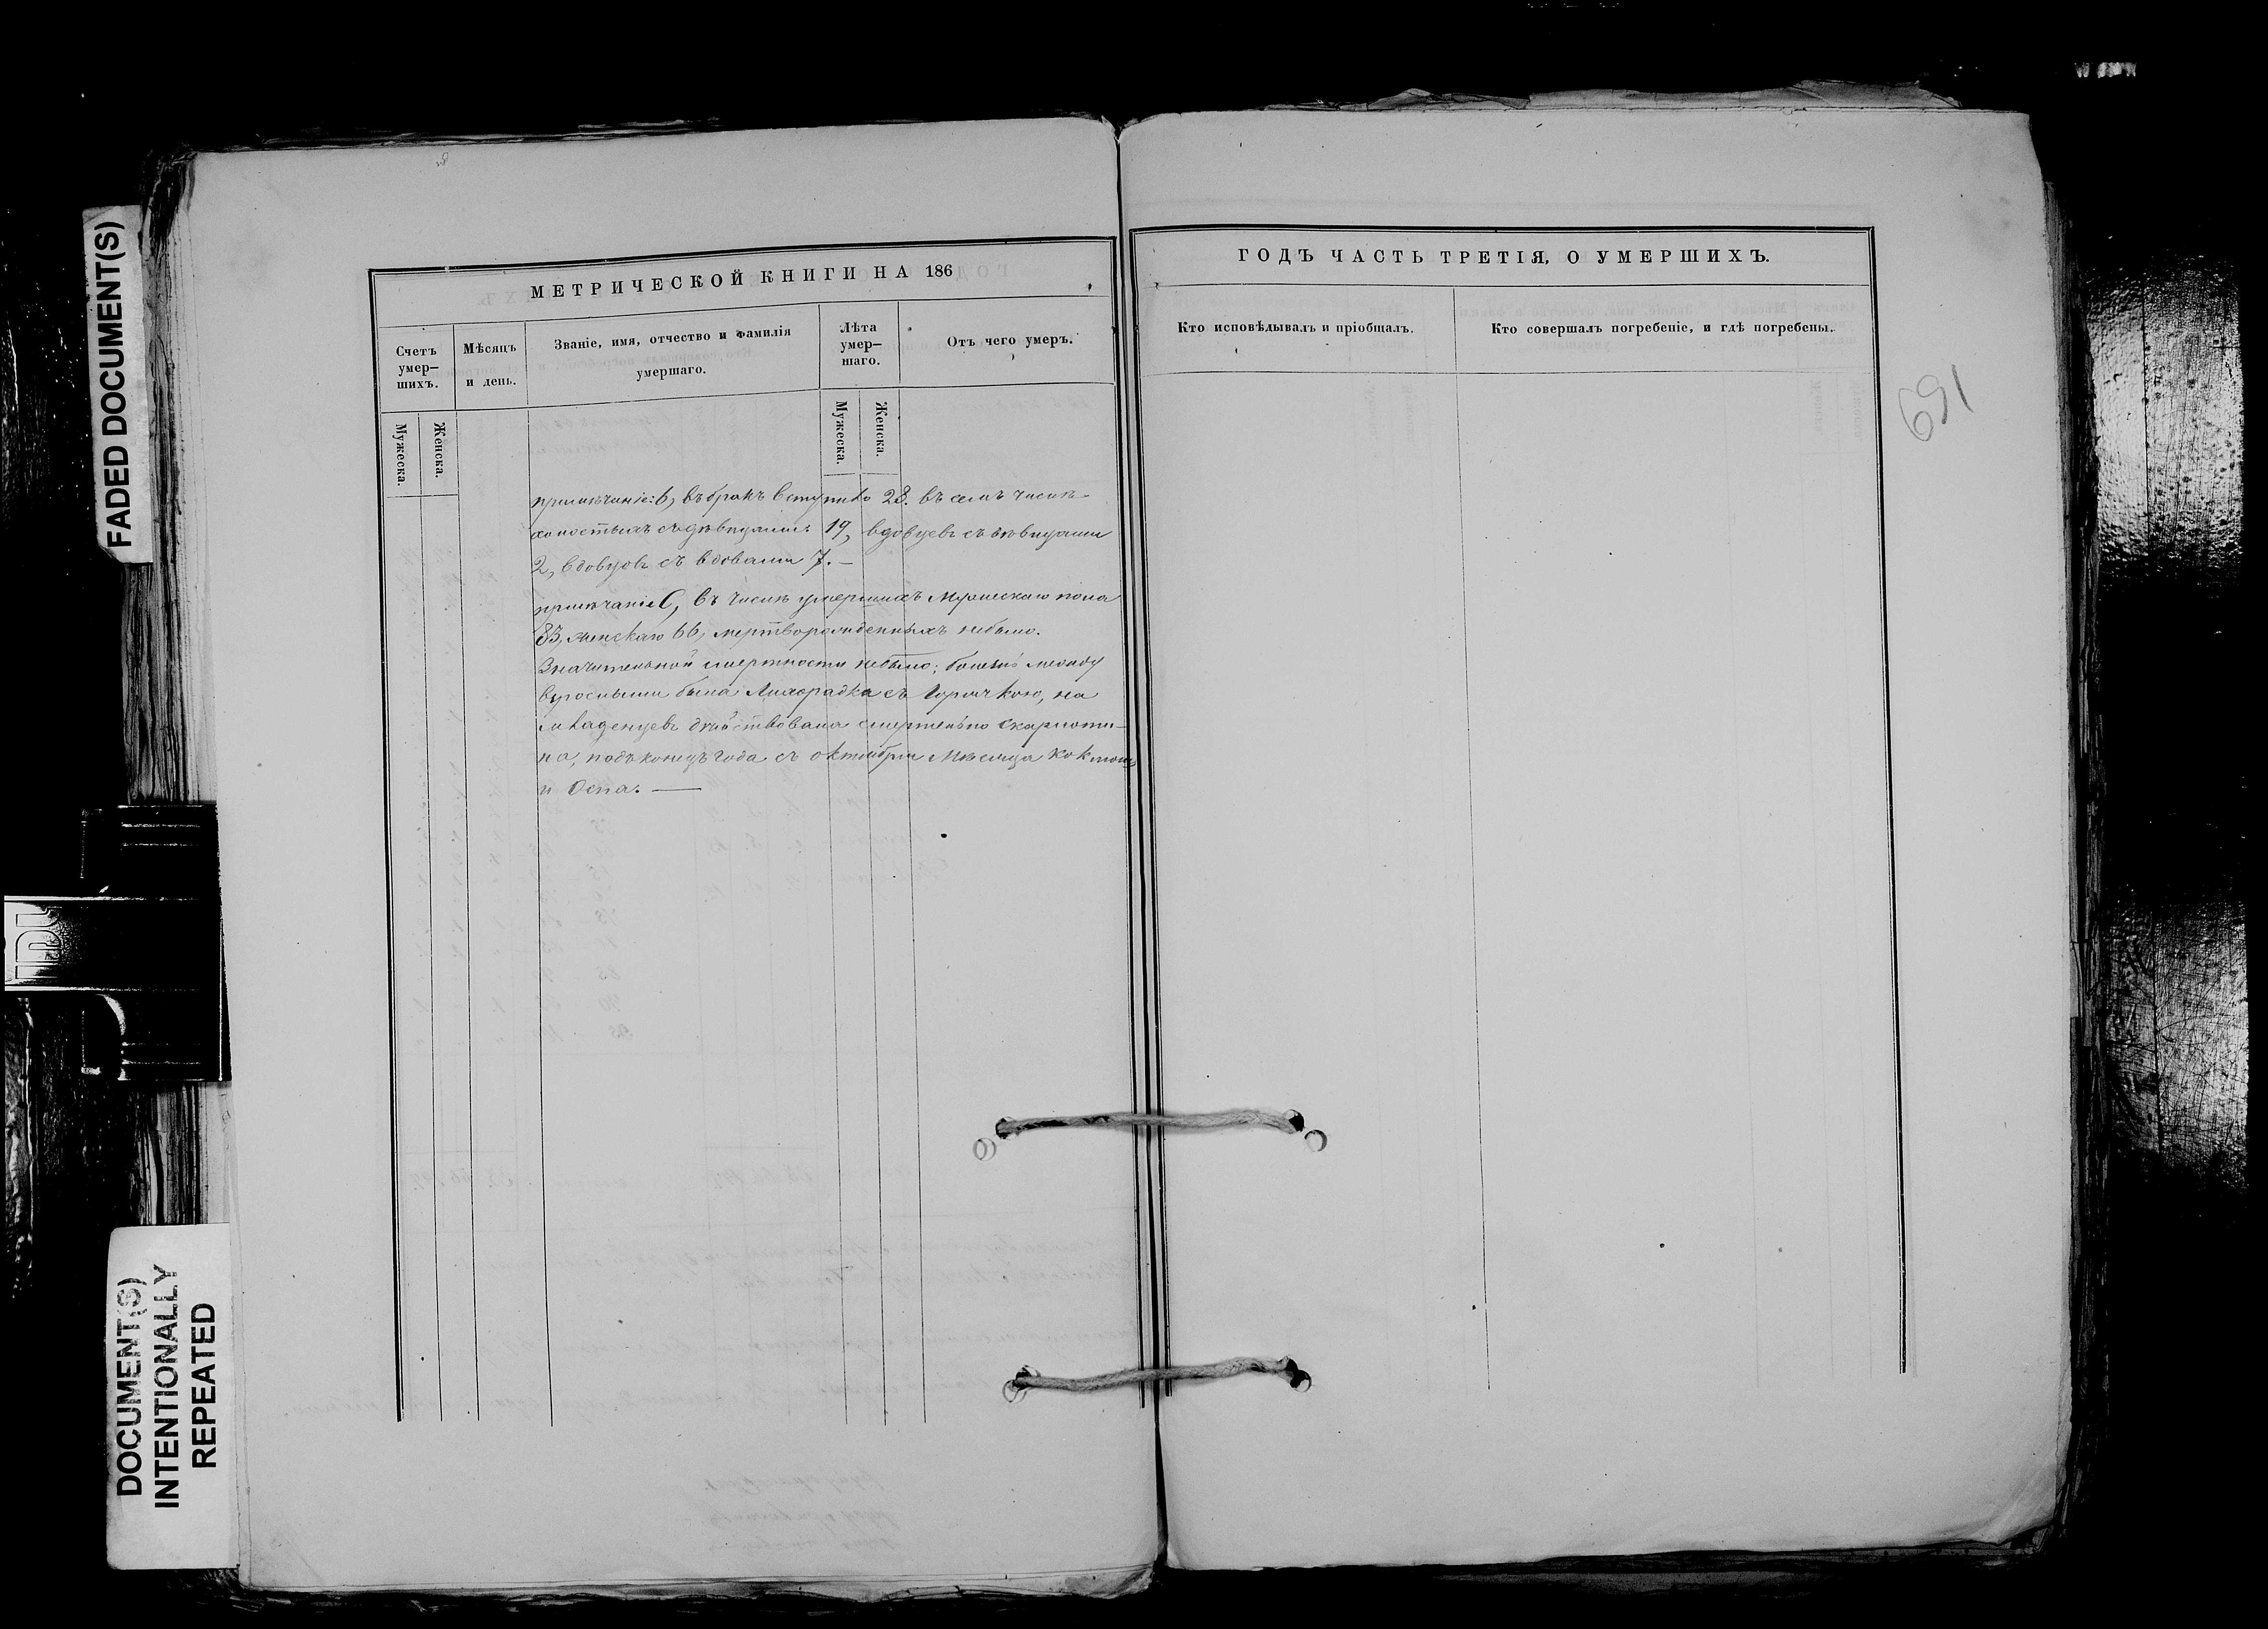 FADED DOCUMENT(S)
МЕТРИЧЕСКОЙ КНИГИ НА 186
Счетъ умер-шихъ.
Мѣсяцъ и день.
Званіе, имя, отчество и фамилія умершаго.
Лѣта умер-шаго.
Отъ чего умеръ.
Мужеска.
Женска.
Мужеска.
Женска.
примѣчаніе: в, въ бракъ вступило 28. въ семъ числѣ
холостыхъ съ дѣвицами 19, вдовцевъ съ дѣвицами
2, вдовцовъ съ вдовами 7. —
примѣчаніе С, въ числѣ умершихъ мужескаго пола
83, женскаго 66, мертворожденныхъ небыло.
Значительной смертности небыло; болезнь между
взрослыми была Лихорадка съ Горячкою, на
младенцевъ дѣйствовала смертельно скарлоти-
на, подъ конецъ года съ октября мѣсяца
и Оспа. —
ГОДЪ ЧАСТЬ ТРЕТІЯ, О УМЕРШИХЪ.
Кто исповѣдывалъ и пріобщалъ.
Кто совершалъ погребеніе, и гдѣ погребены.
691
DOCUMENT(S)
INTENTIONALLY
REPEATED